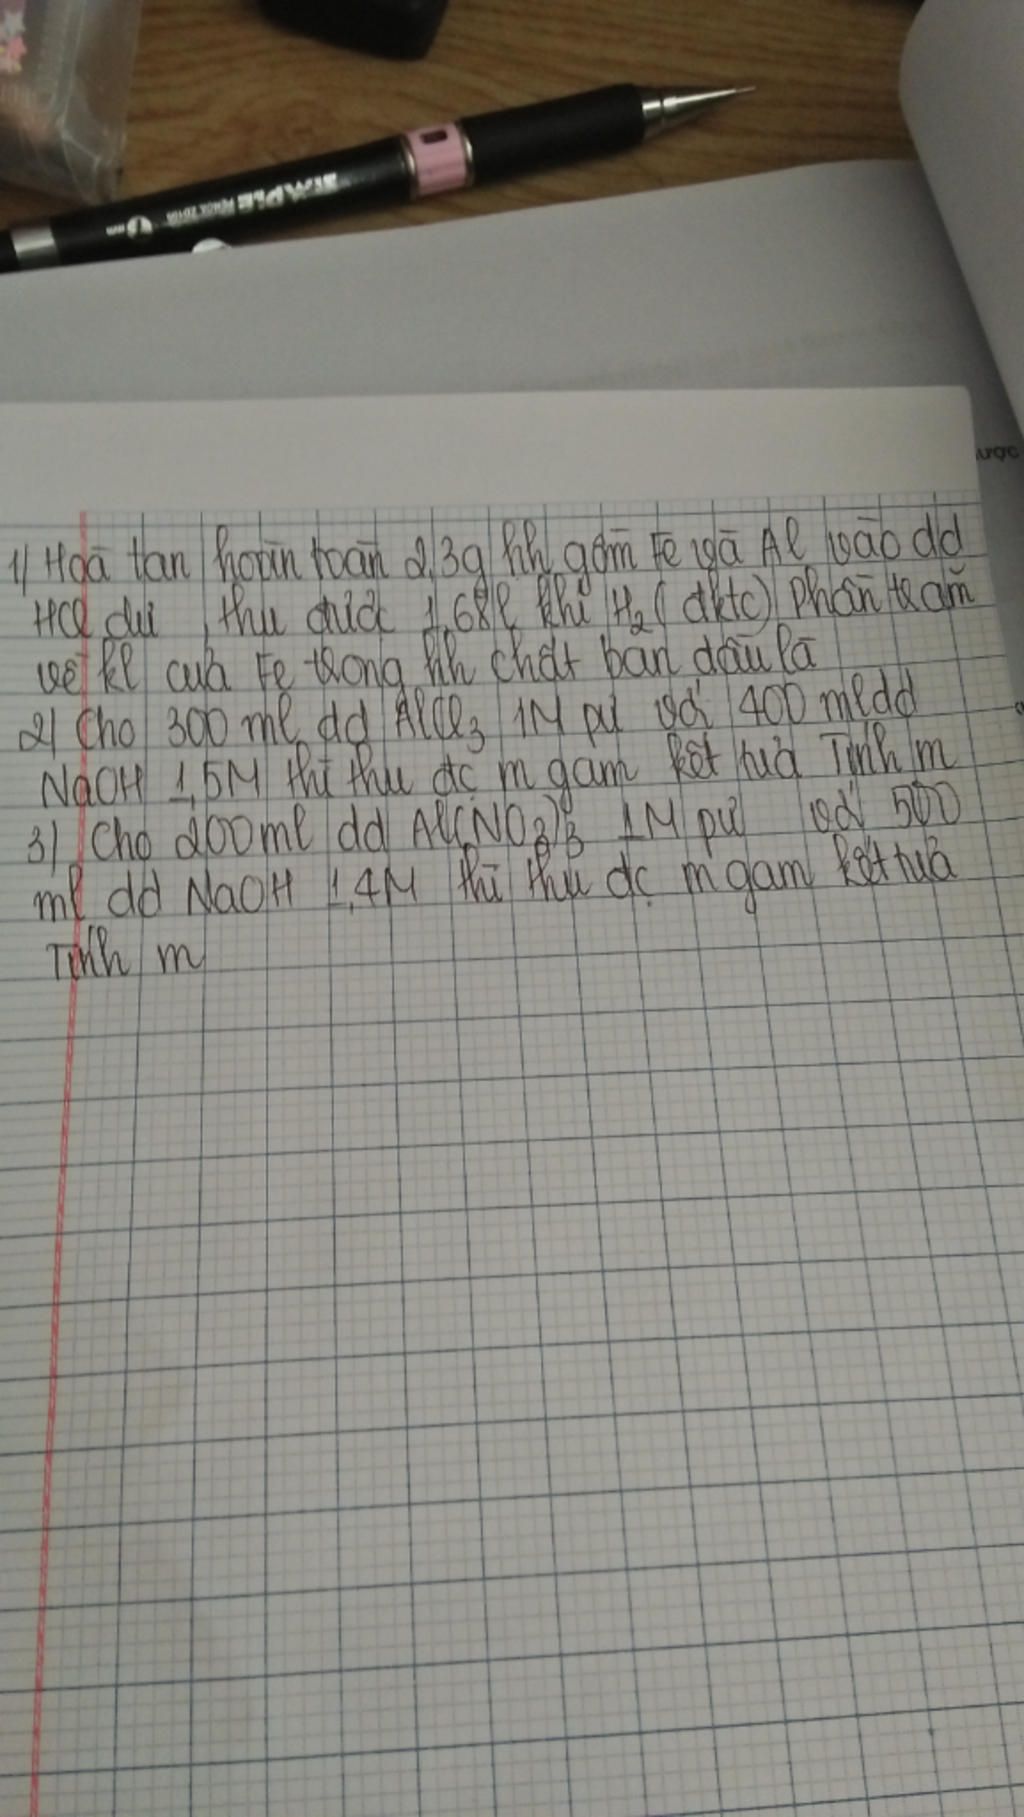 STAPLE
ược
1) Hoà tan hoàn toàn 2,3g hh gồm Fe và Al vào dd
HCl dư, thu được 1,68l khí H₂ (đktc) Phần trăm
về kl của Fe trong hh chất ban đầu là
2) Cho 300 ml dd AlCl₃ 1M pư với 400 ml dd
NaOH 1,5M thì thu đc m gam kết tủa Tính m
3) Cho 200ml dd Al(NO₃)₃ 1M pư với 500
ml dd NaOH 1,4M thì thu đc m gam kết tủa
Tính m